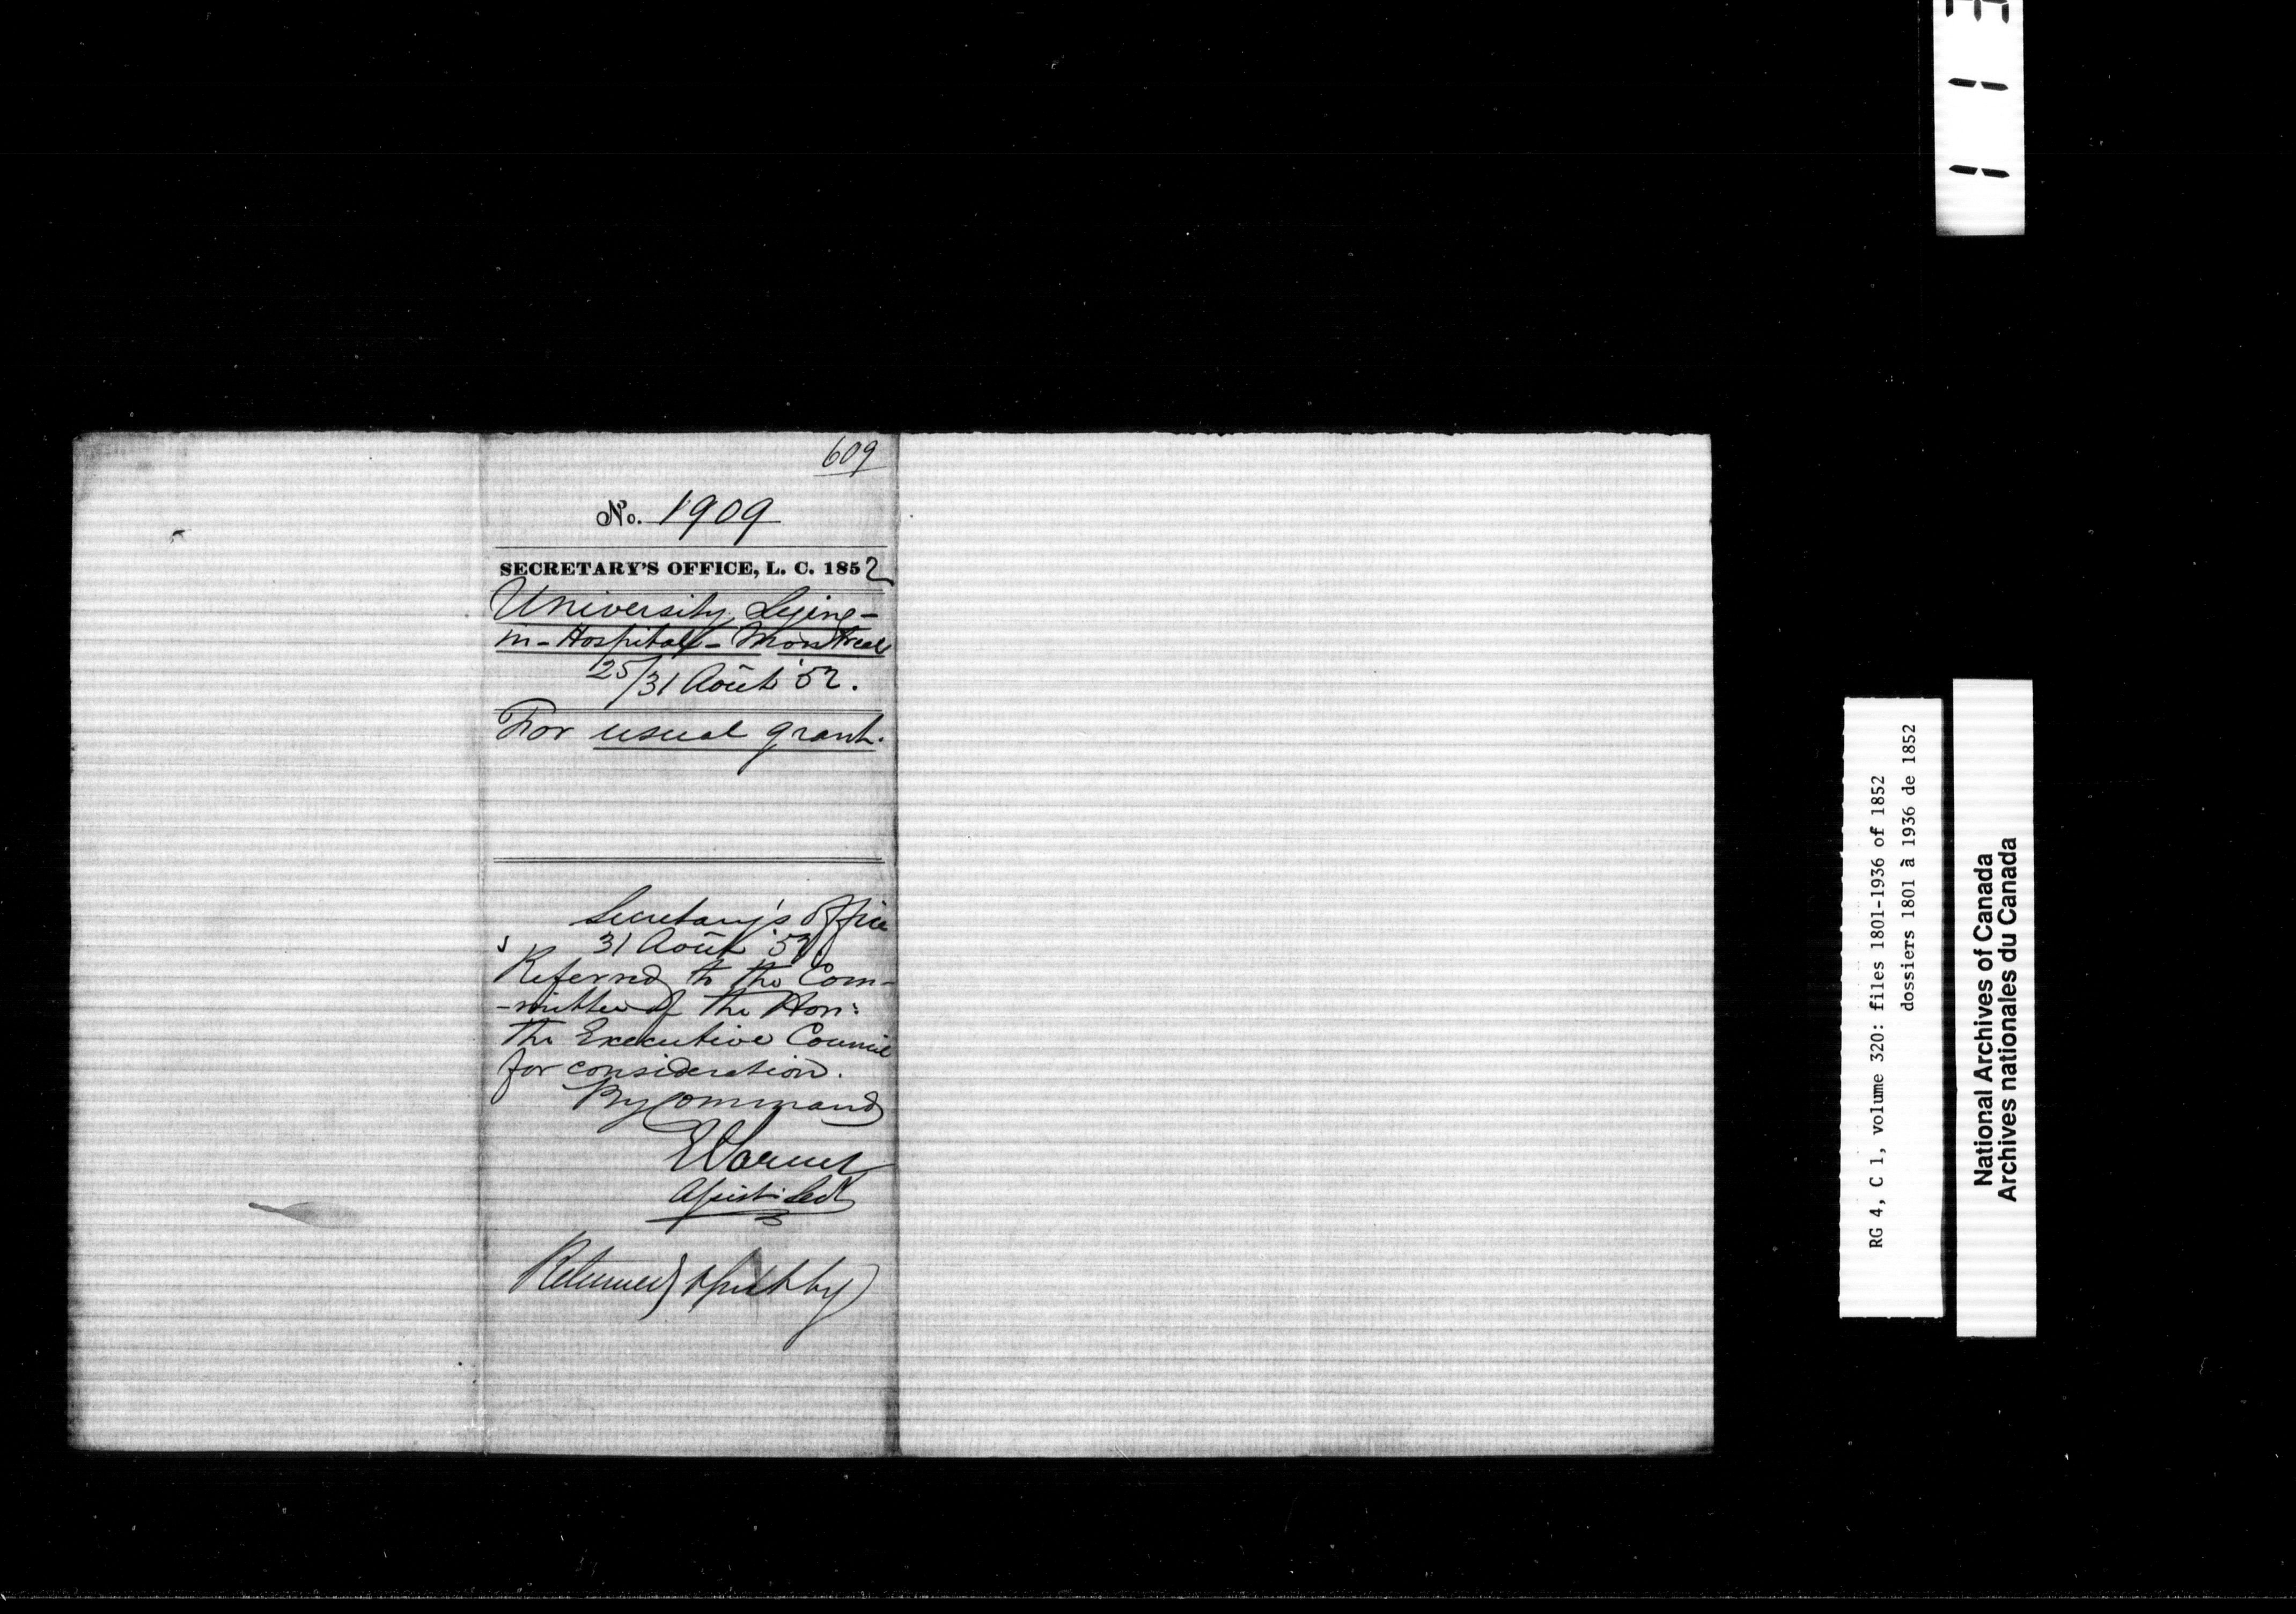 609
No. 1909
SECRETARY'S OFFICE, L. C. 1852
University Lying-
in-Hospital - Montreal
25/31 Août '52.
For usual grant.
Secretary's Office
31 Août '52
Referred to the Com-
-mittee of the Hon:
the Executive Council
for consideration.
By Command
Assist: Sec
Returned
RG 4, C 1, volume 320: files 1801-1936 of 1852
dossiers 1801 à 1936 de 1852
National Archives of Canada
Archives nationales du Canada
113